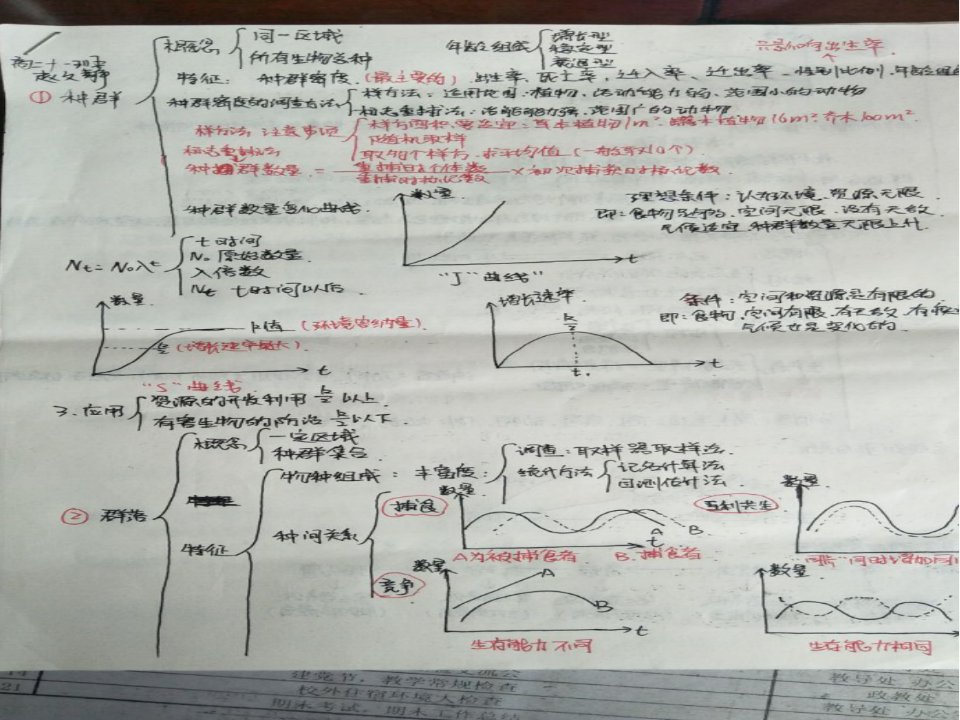 概念 同一区域
所有生物各种
年龄组成 增长型
稳定型
衰退型
只影响出生率
高二十一班
① 种群
特征：种群密度（最主要的）出生率、死亡率、迁入率、迁出率 性别比例
种群密度的调查方法 样方法：适用范围：植物，活动能力弱，范围小的动物
标志重捕法：活动能力强，范围广的动物
样方法 注意事项 样方面积要适宜：草本植物1m² 灌木植物16m² 乔木100m²
随机取样
取多个样方，求平均值
标志重捕法
种群数量 = 重捕的个体数 × 初次捕获的标志数
重捕的标记数
种群数量变化曲线
数量
t
"J"曲线"
理想条件：认为环境资源无限
即：食物充分的，空间无限，没有天敌
气候适宜，种群数量无限上升
Nt = N₀λᵗ t 时间
N₀ 原始数量
入倍数
Nt t时间以后
数量
K值（环境容纳量）
K/2（增长速率最大）
t
"S"曲线
增长速率
K/2
t₁
t
条件：空间和资源是有限的
即：食物，空间有限，有天敌，有
气候也是变化的
3.应用 资源的开发利用 K/2 以上
有害生物的防治 K/2 以下
② 群落
概念 一定区域
种群集合
特征
物种组成：丰富度：调查：取样器取样法
统计方法 记名计算法
目测估计法
种间关系
捕食
数量
A B
t
A为被捕食者 B 捕食者
互利共生
数量
竞争
数量
A
B
t
生存能力不同
数量
生存能力相同
21
建党节，教学常规检查
校外住宿环境大检查
期末考试，期末工作总结
教导处 办公
政教处
教导处 办公